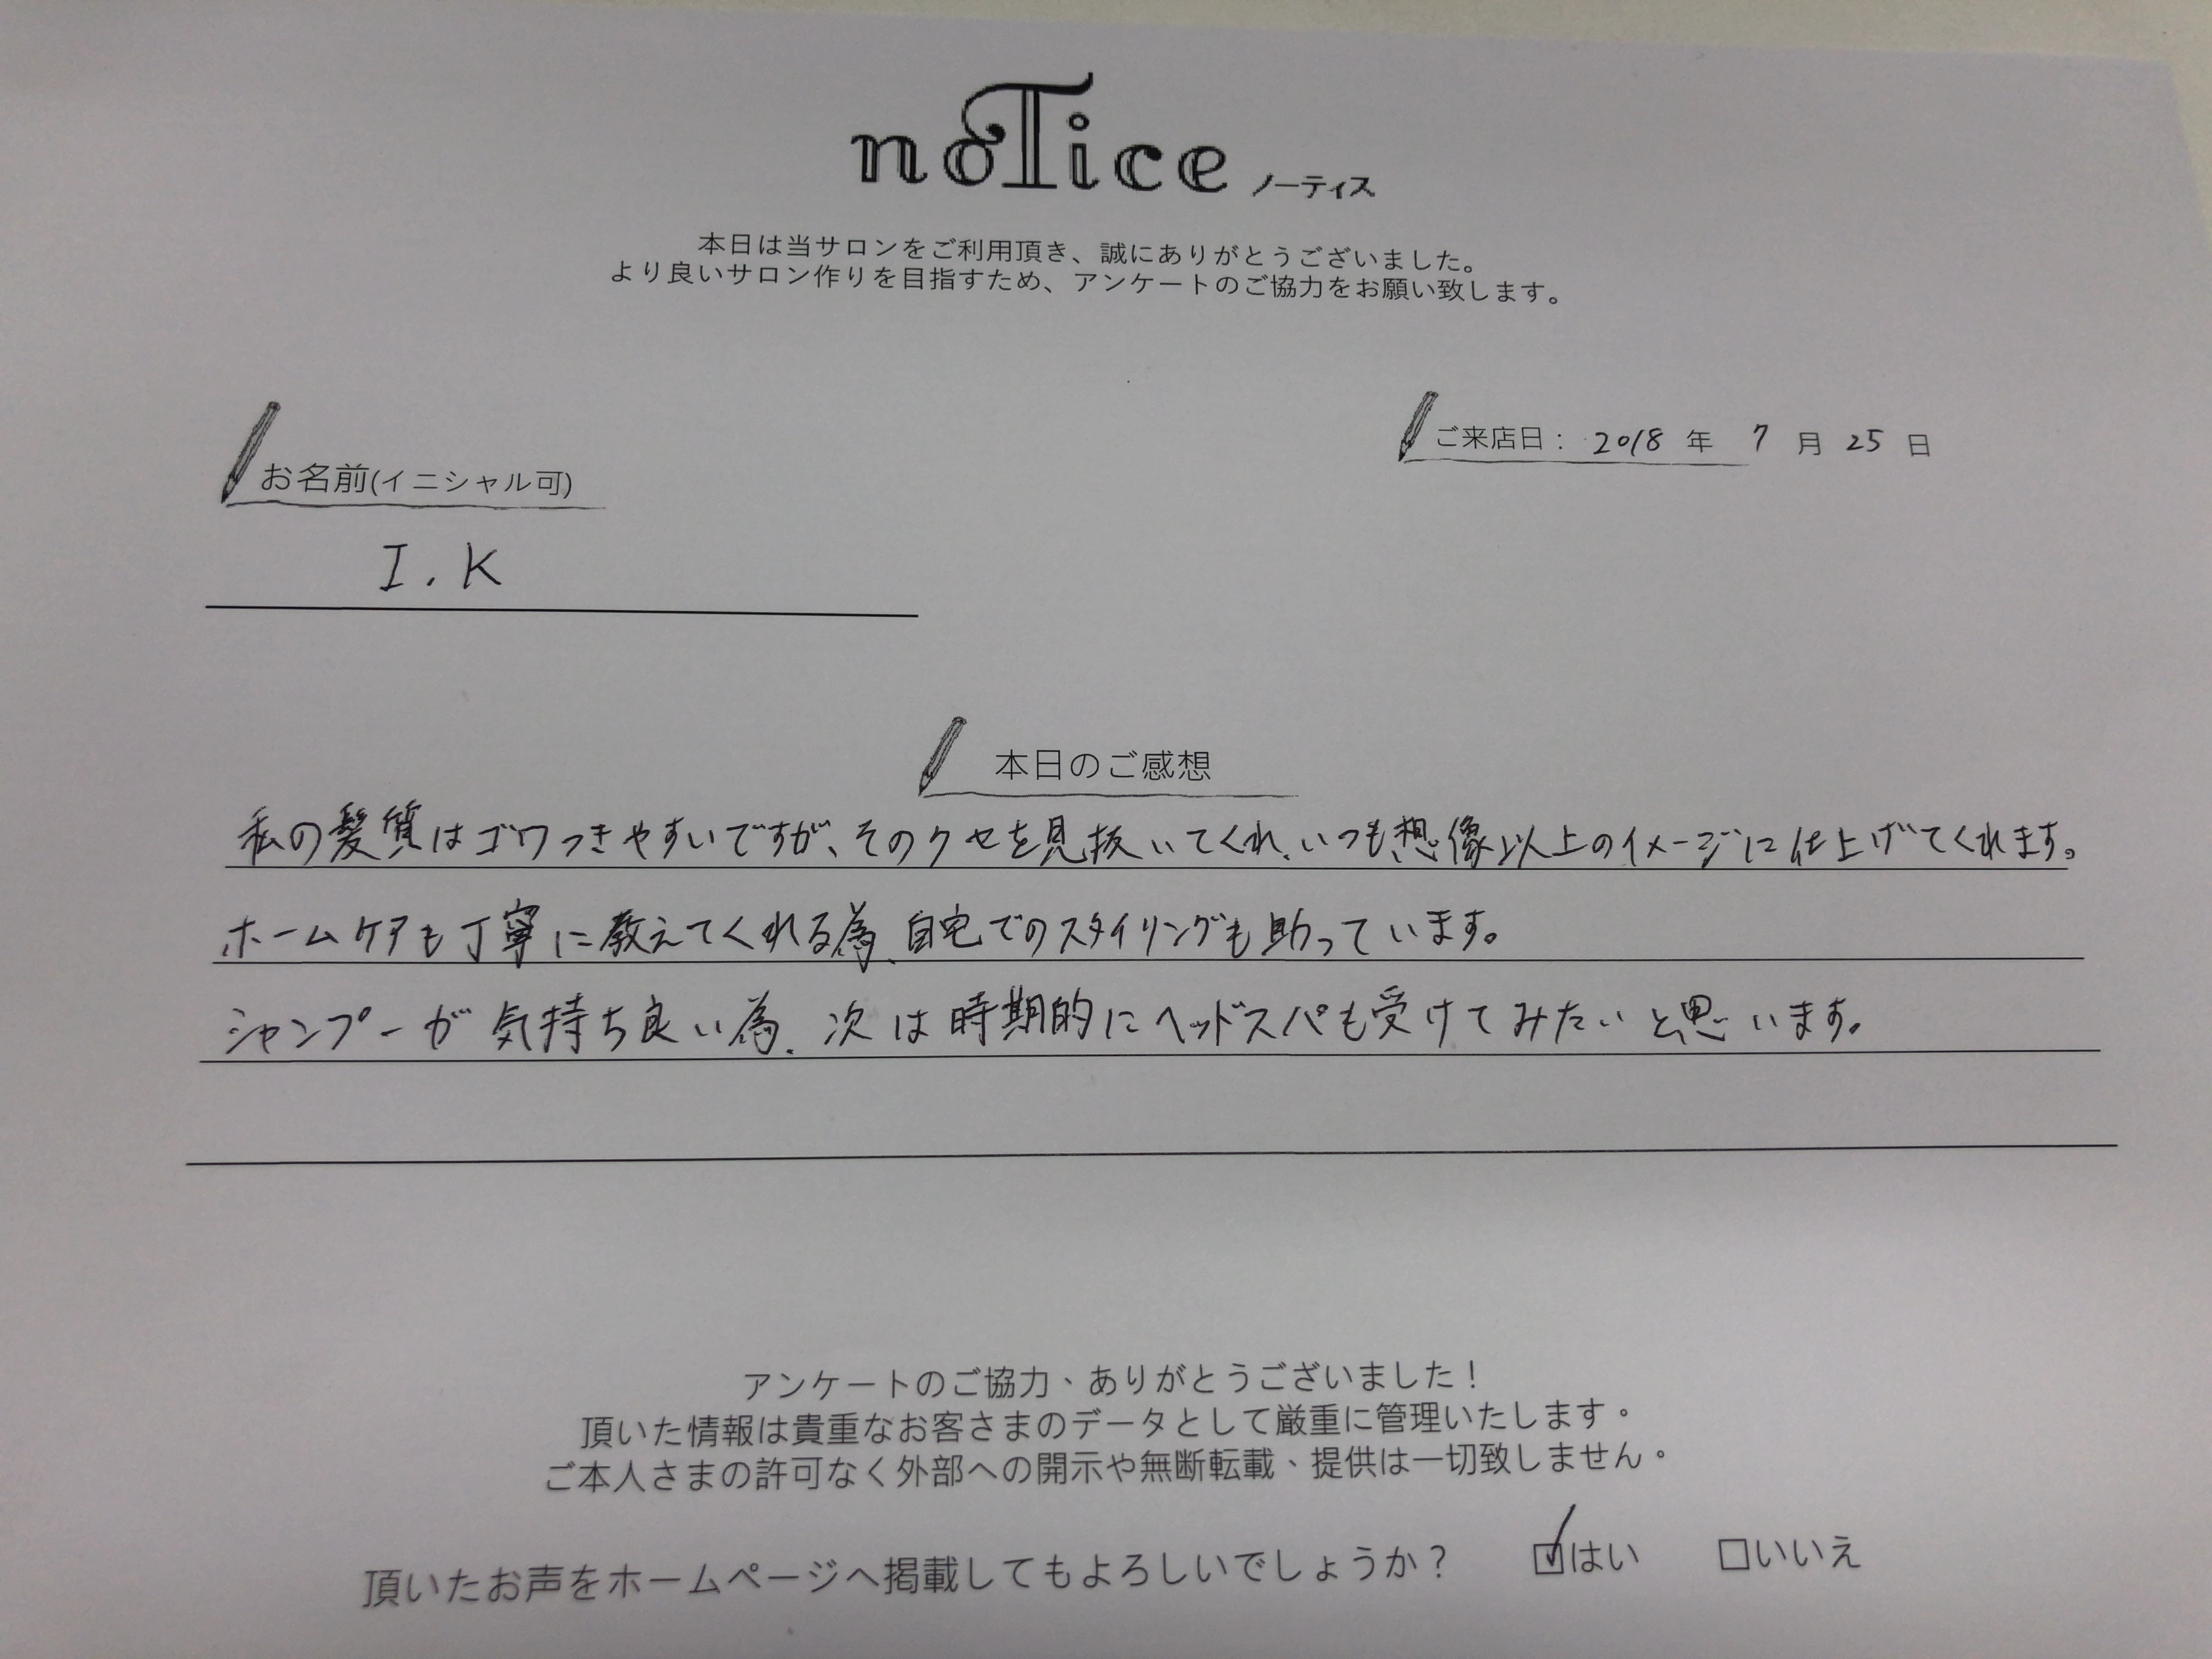 noTice ノーティス
本日は当サロンをご利用頂き、誠にありがとうございました。
より良いサロン作りを目指すため、アンケートのご協力をお願い致します。
ご来店日： 2018 年 7 月 25 日
お名前(イニシャル可)
I.K
本日のご感想
私の髪質はゴワつきやすいですが、そのクセを見抜いてくれ、いつも想像以上のイメージに仕上げてくれます。
ホームケアも丁寧に教えてくれる為、自宅でのスタイリングも助っています。
シャンプーが気持ち良い為、次は時期的にヘッドスパも受けてみたいと思います。
アンケートのご協力、ありがとうございました！
頂いた情報は貴重なお客さまのデータとして厳重に管理いたします。
ご本人さまの許可なく外部への開示や無断転載、提供は一切致しません。
頂いたお声をホームページへ掲載してもよろしいでしょうか？ ☑はい □いいえ